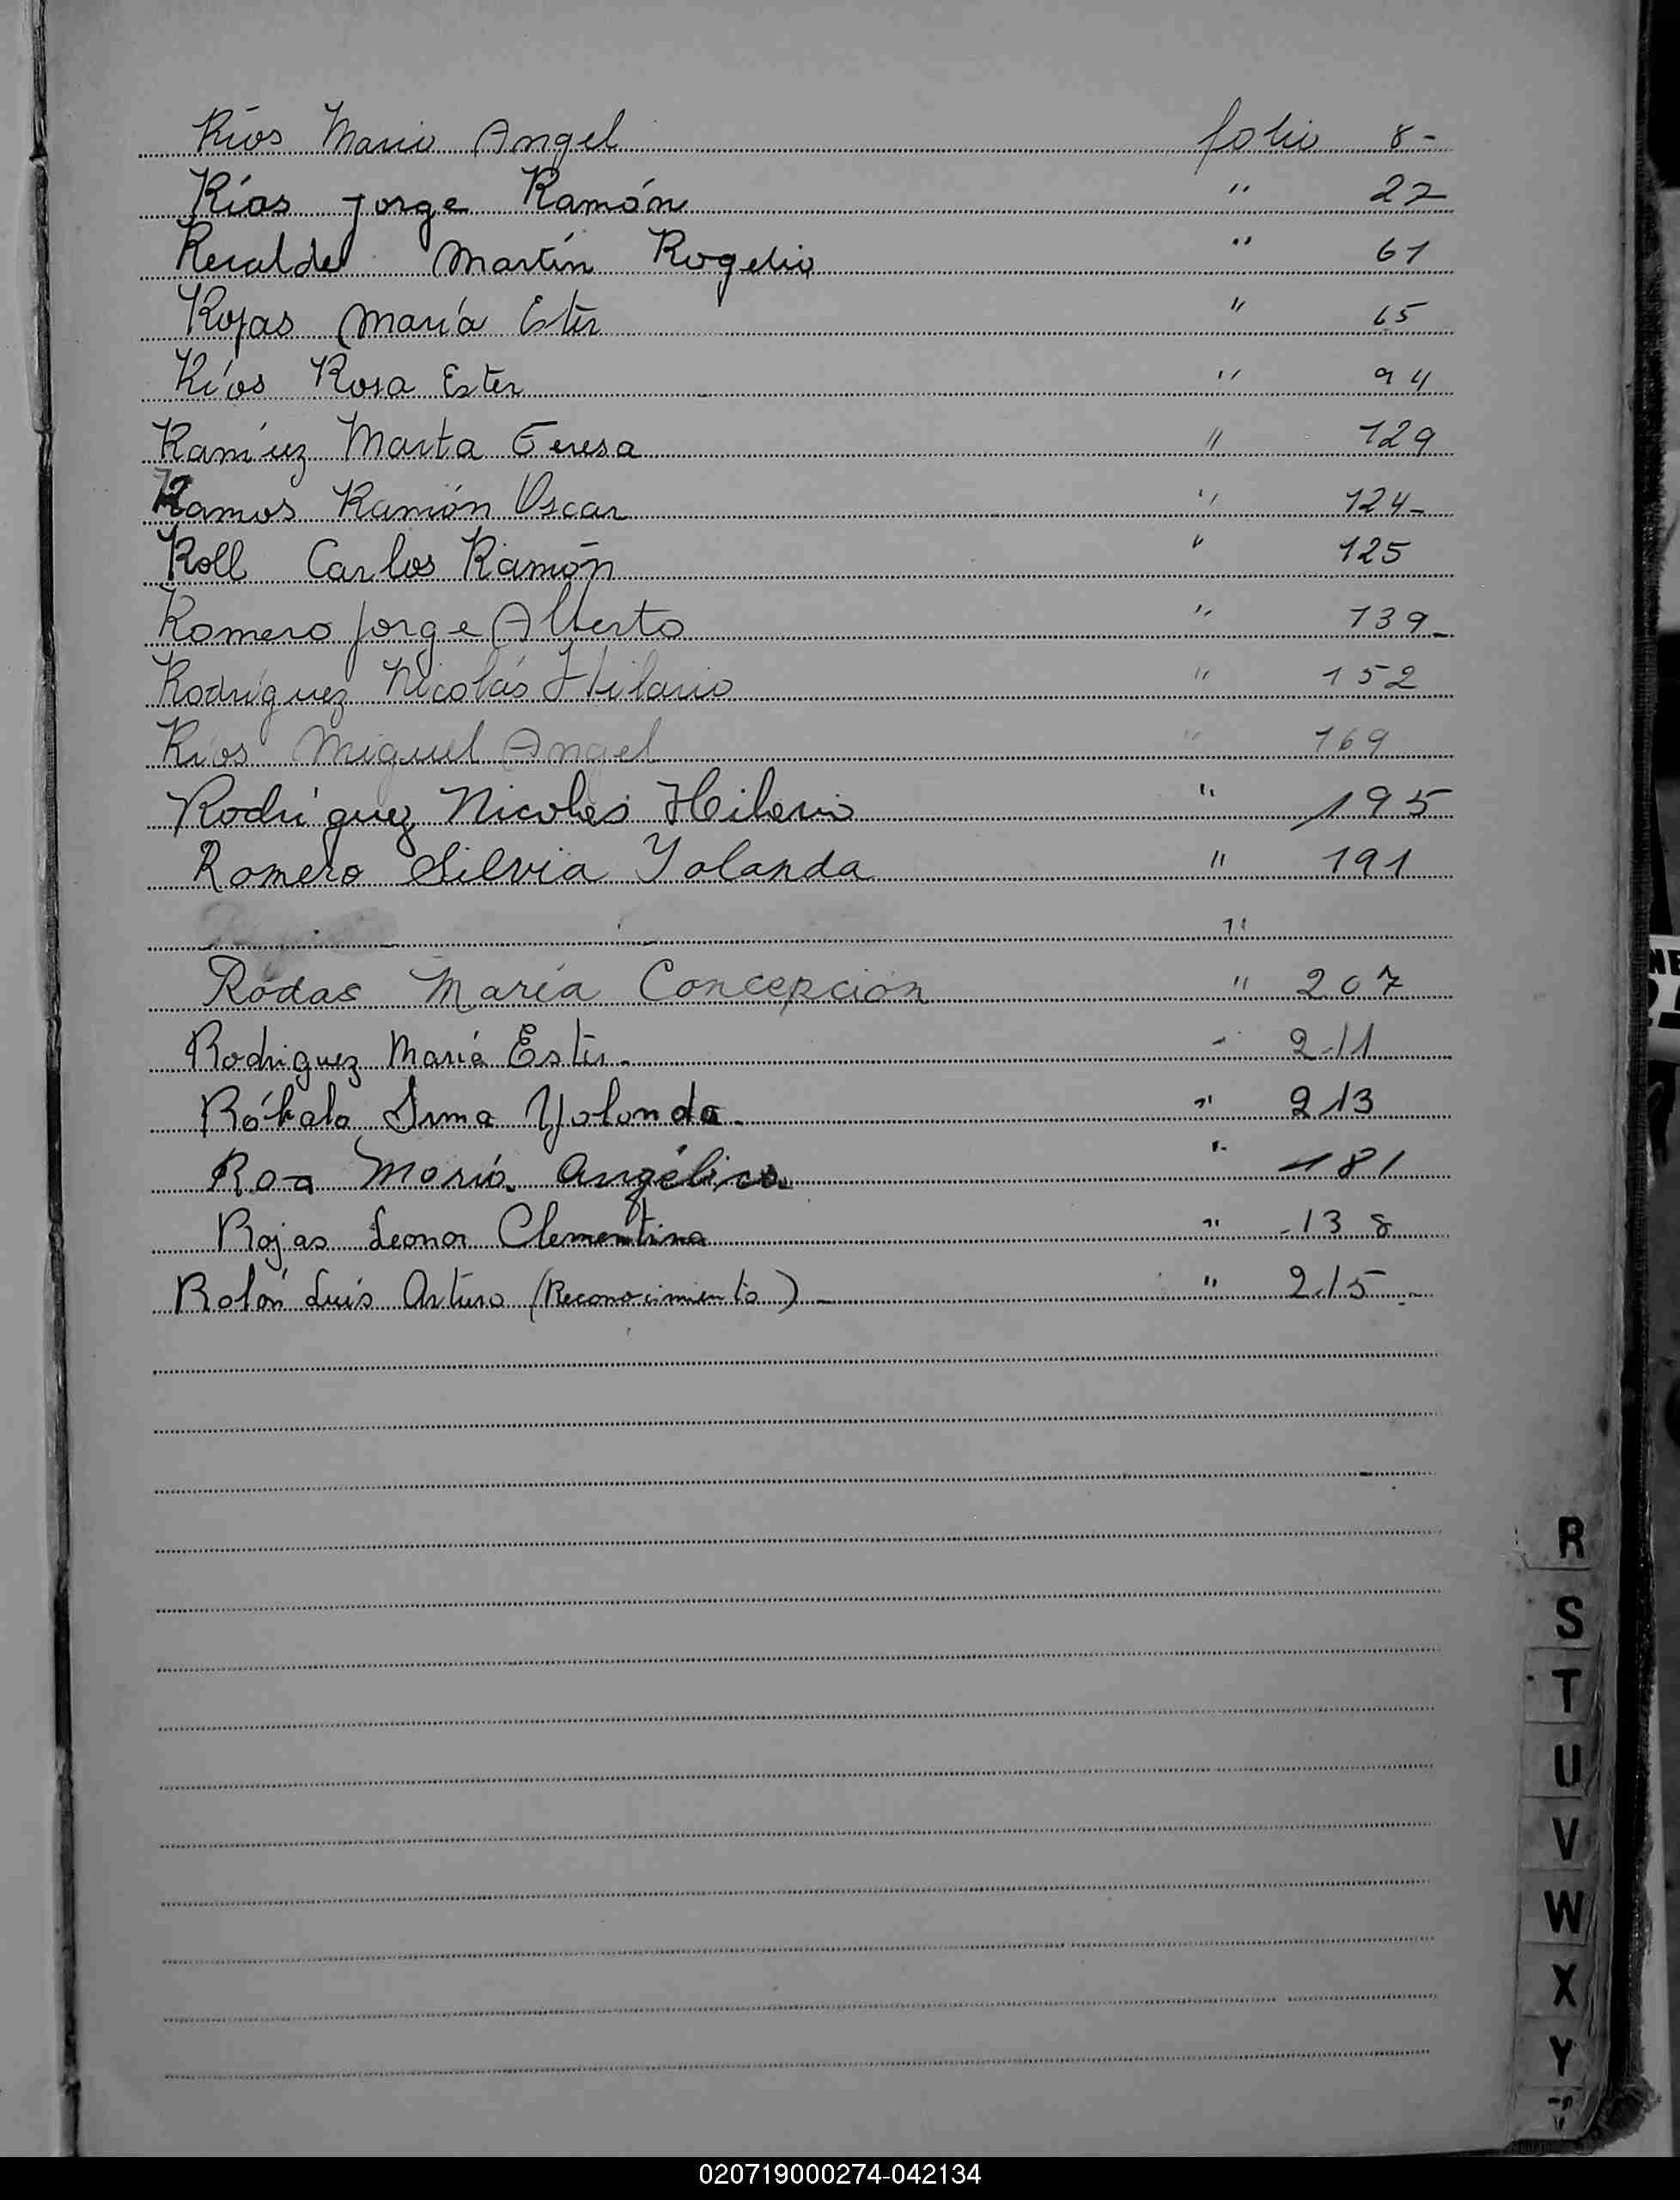 Ríos Mario Angel folio 8-
Ríos Jorge Ramón " 22
Recalde Martín Rogelio " 61
Rojas María Ester " 65
Ríos Rosa Ester " 94
Ramírez Marta Teresa " 129
Ramos Ramón Oscar " 124-
Roll Carlos Ramón " 125
Romero Jorge Alberto " 139-
Rodríguez Nicolás Hilario " 152
Ríos Miguel Angel " 169
Rodríguez Nicolas Hilario " 195
Romero Silvia Yolanda " 191
"
Rodas María Concepción " 207
Rodriguez María Ester- " 211
Irma Yolanda- " 213
Roa María Angélica " 181
Rojas Leonor Clementina " 138
Rolón Luis Arturo (Reconocimiento)- " 215-
R
S
T
U
V
W
X
Y
020719000274-042134